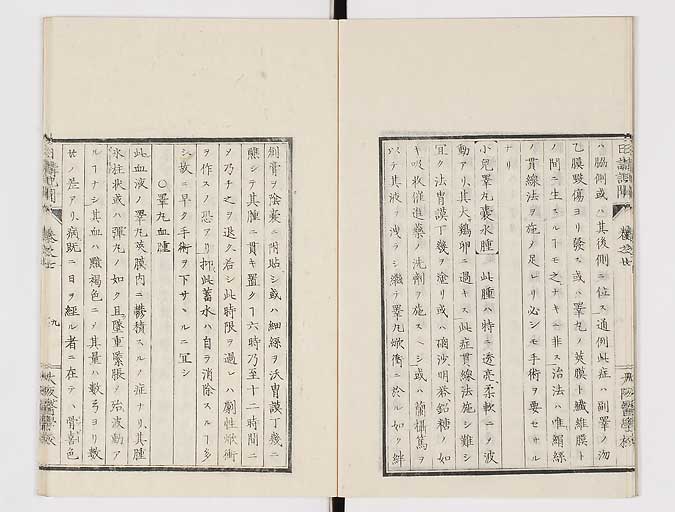 ハ脇側或ハ其後側ニ位ス通例此症ハ副睾ノ沕
乙膜毀傷ヨリ發ス或ハ睾丸ノ莢膜ト繊維膜ト
ノ間ニ生スルヿモ之ナキニ非ス治法ハ唯絹絲
ノ貫線法ヲ施ノ足レリ必シモ手術ヲ要セサル
ナリ
小兒睾丸囊水腫 此腫ハ特ニ透亮柔軟ニノ波
動アリ其大鷄卵ニ過キス此症貫線法施シ難シ
宜ク法冑謨丁幾ヲ塗リ或ハ硇沙明礬鉛糖ノ如
キ吸收催進藥ノ洗劑ヲ施スヘシ或ハ蘭攝篤ヲ
以テ其液ヲ洩ラシ繼テ睾丸焮衝ニ於ルカ如ク絆
日講記聞
卷之七
大阪醫學校
創膏ヲ陰囊ニ附貼シ或ハ細綿ヲ沃冑謨丁幾ニ
蘸シテ其腫ニ貫キ置クヿ六時乃至十二時間ニ
ノ乃チ之ヲ退ク若シ此時限ヲ過レハ劇性焮衝
ヲ作スノ恐アリ抑此蓄水ハ自ラ消除スルヿ多
シ故ニ早ク手術ヲ下サヽルニ宜シ
○睾丸血腫
此血液ノ睾丸莢膜内ニ鬱積スルノ症ナリ其腫
水柱狀或ハ彈丸ノ如ク且墜重緊脹ノ殆波動ア
ルヿナシ其血ハ黯褐色ニノ其量ハ數弓ヨリ數
ノ差アリ病既ニ日ヲ經ル者ニ在テハ骨喜色
日講記聞
卷之七
九
大阪醫學校